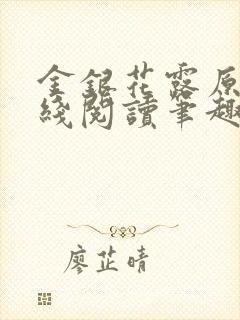 金銀花露原
綫閱讀筆趣
廖芷晴